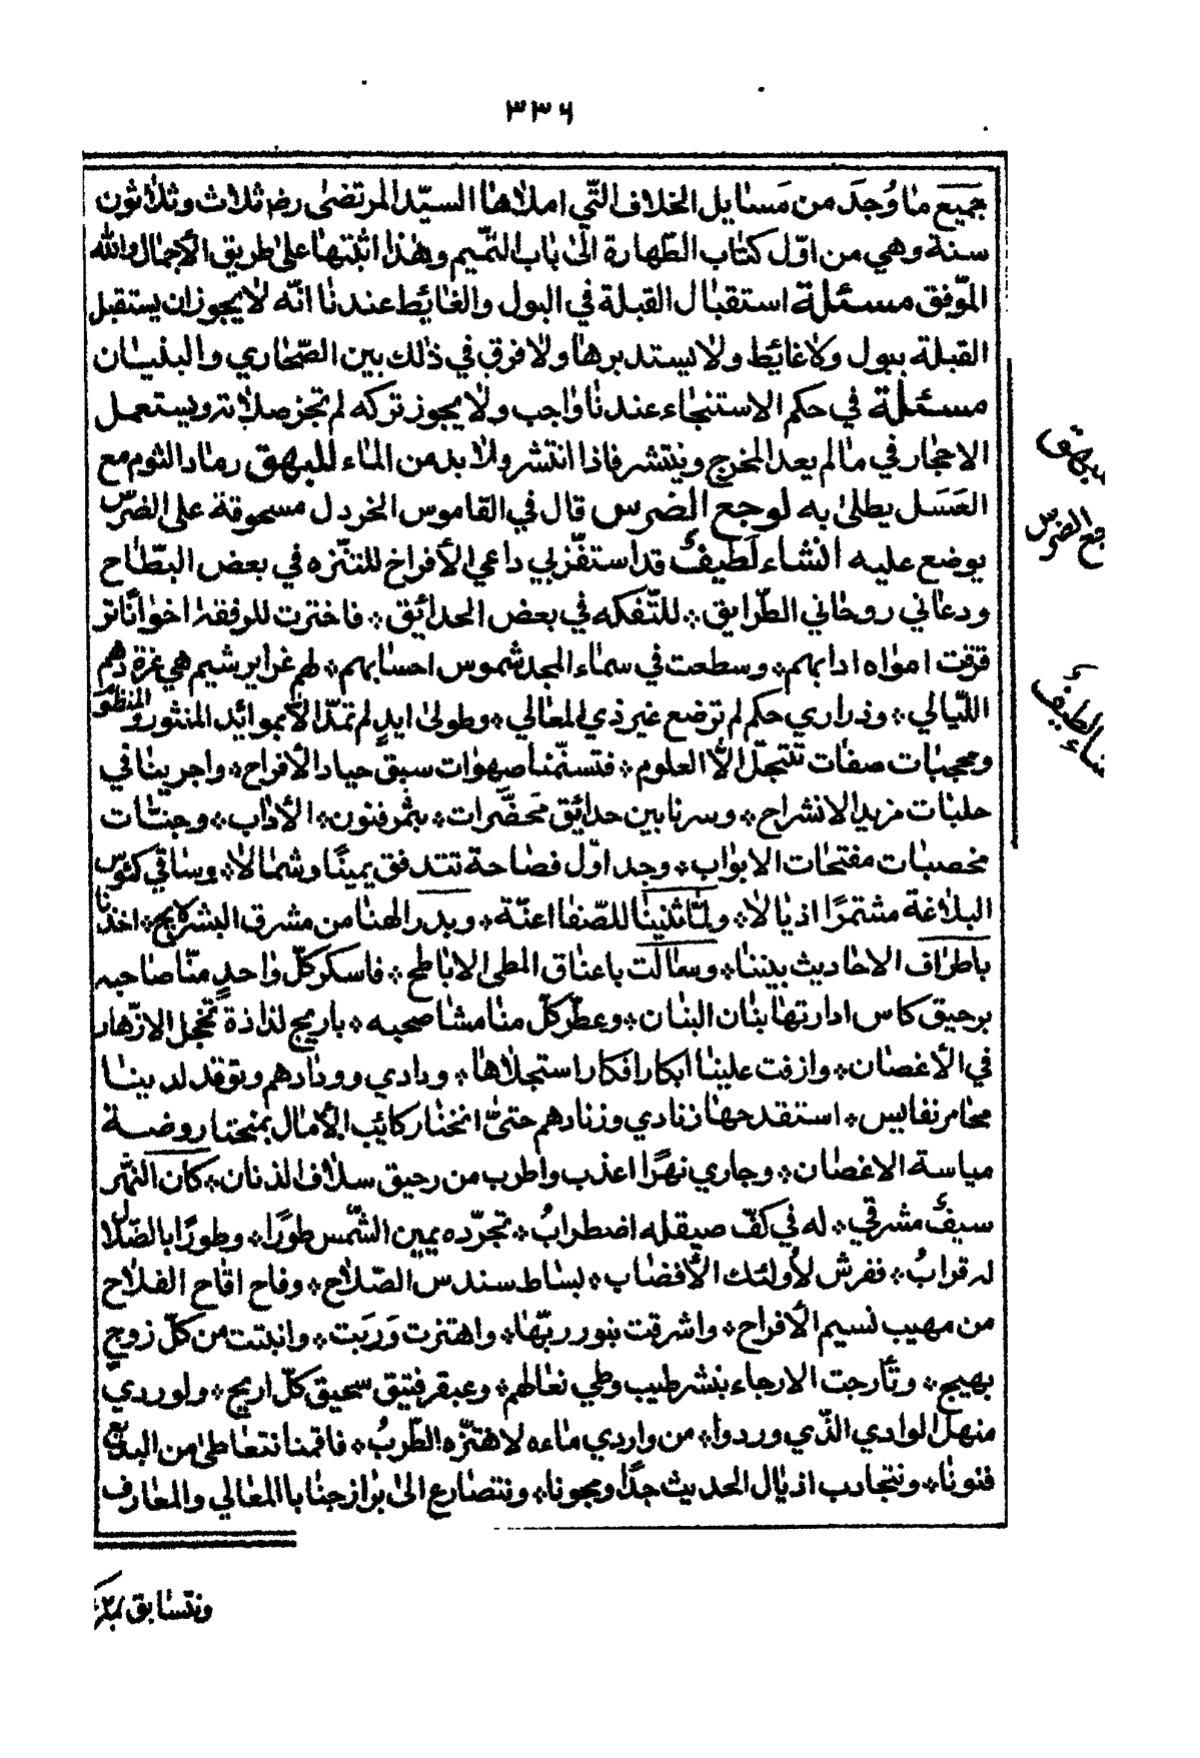 ٣٣٦
جميع ما وُجدَ من مَسايل الخلاف التّي املاها السيّد المرتضى رضا ثلاث وثلاثون
سنة وهي من اوّل كتاب الطّهارة الى باب التّميم وهذا اثبتها على طريق الأجمال والله
الموّفق مسئلة استقبال القبلة في البول والغائِط عندنا انّه لا يجوز ان يستقبل
القبلة ببول ولا غائِط ولا يستدبرها ولا فرق في ذلك بين الصّحاري والبنيان
مسئلة في حكم الاستنجاء عندنا واجب ولا يجوز تركه لم تجز صلاته ويستعمل
الاحجار في ما لم يعد المخرج وينتشر فاذا انتشر ولا بد من الماء للبهق رماد الثوم مع
العَسَل يطلى به لوجع الضرس قال في القاموس الخردل مسحوقة على الضرّس
يوضع عليه انشاء لَطيفٌ قد استفّزبي داعي الأفراخ للتنّزه في بعض البّطاح
ودعاني روحاني الطّرايق * للتّفكه في بعض الحدائق * فاخترت للرفقة اخوانًا تر
قرقت امواه ادابهم * وسطعت في سماء المجد شموس احسابهم * لهم غراير شيم هي غزة دهم
اللّيالي * وذراري حكم لم ترضع غير ذي المعالي * وطولى ايدٍ لم تمدّ الّا بموائد المنثور والمنظوم
وعجبات صفات تتجمّل الّا العلوم * فتسنّمنا صهوات سبق جياد الأفراح * واجرينا في
حلبات مزيد الانشراح * وسرنا بين حدائق مَحضّرات * بثمر فنون * الأداب * وجنّات
مخصبات مفتحات الابواب * وجداول فصاحة تتدفق يمينًا وشمالًا * وساقي كئوس
البلاغة مشتمرًا اذيالا * ولمّا ثنينا للصّفا اعنّة * وبدر الهنا من مشرق البشر لايح * اخذنا
باطراف الاحاديث بيننا * وسالت باعناق المطى الاباطح * فاسكر كلّ واحدٍ منّا صاحبه
برحيق كاس ادارتها بنان البنان * وعطّر كلّ منا مشا صحبه * باريج لذاذة تخجل الازهار
في الأغصان * وازفت علينا ابكار افكار استجلاها * ودادي وودادهم وتوقد لدينا
مجامر نفايس * استقدحها زنادي وزنادهم حتىّ انخنا ركائب الأمال بمنحنا روضة
مياسة الاغصان * وجاري نهرًا اعذب واطرب من رحيق سلاف الدنان * كان النّهر
سيفٌ مشرقي * له في كفّ صيقله اضطرابُ * تجرّده يمين الشّمس طورًا * وطورًا بالضّلال
له قرابُ * ففرش لأولئك الأفضاب * بساط سندس الصّلاح * وفاح اقاح الفلاح
من مهيب نسيم الأفراح * واشرقت بنور ربّها * واهتزت وَرَبت * وانبتت من كلّ زوج
بهيج * وتأرجت الارجاء بنشر طيب وطي نعالهم * وعبق رفتيق سحيق كلّ اريج * ولو رديّ
منهل الوادي الّذي وردوا * من واردي ماءه لاهتزّه الطّربُ * فاقمنا نتعاطى من البديع
فنونا * ونتجاذب اذيال الحديث جدّا ومجونا * ونتصارع الى براز جنابا المعالي والمعارف
ونتسابق
بهق
جع الضرس
شاء لطيف